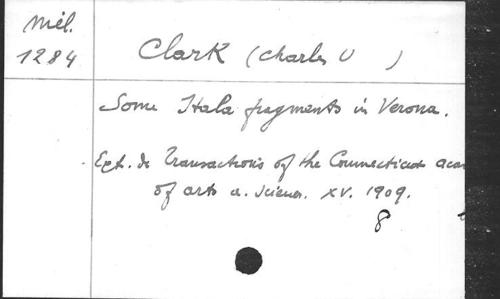 Mél.
1284
Clark (Charles U )
Some Itala fragments in Verona.
Ext. de Transactions of the Connecticut acad
of arts a. scienc. XV. 1909.
8